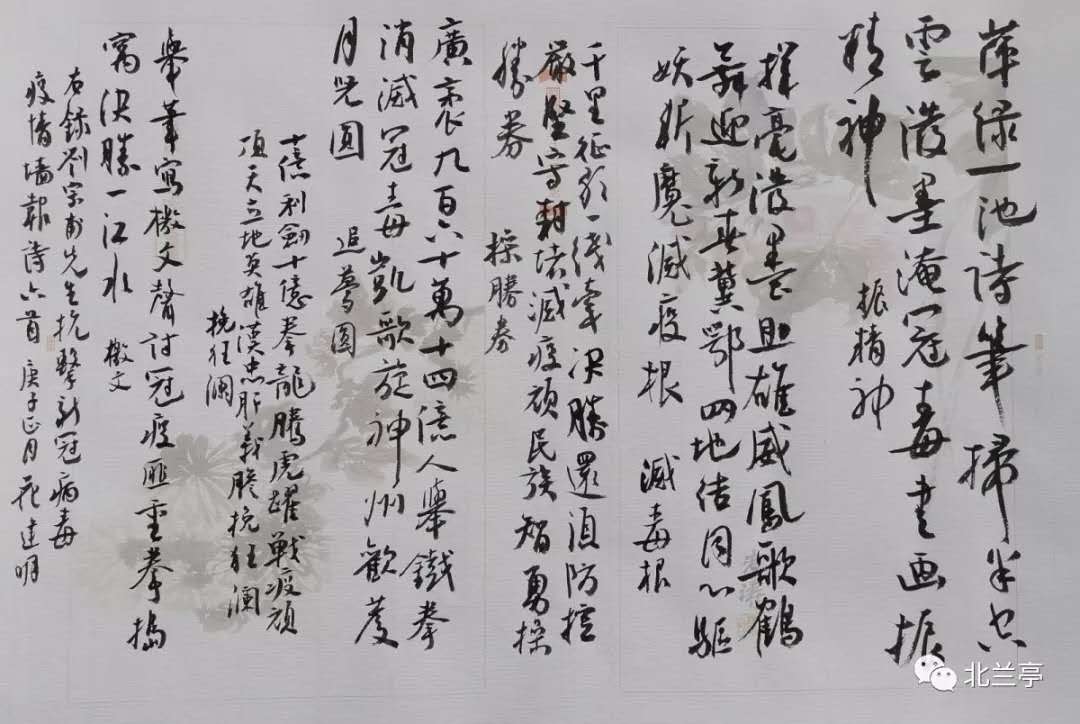 萍绿一池詩筆掃半空
雲潑墨淹冠毒書画振
精神 振精神
揮毫潑墨血雄威鳳歌鶴
舞迎新春冀鄂四地結同心驅
妖斬魔滅疫根 滅毒根
千里征 一线牽決勝還須防控
嚴堅守封堵滅疫頑民族智勇操
勝券 操勝券
廣袤九百六十萬十四億人舉鐵拳
消滅冠毒凱歌旋神州歡慶
月兒圓 追夢圓
十億利劍十億拳龍騰虎躍戰疫頑
頂天立地英雄漢忠肝義膽挽狂瀾
挽狂瀾
舉筆寫檄文聲討冠疫匪重拳搗
窩決勝一江水 檄文
右録劉宗 先生抗擊新冠病毒
疫情墙報詩六首 庚子正月 建明
北兰亭